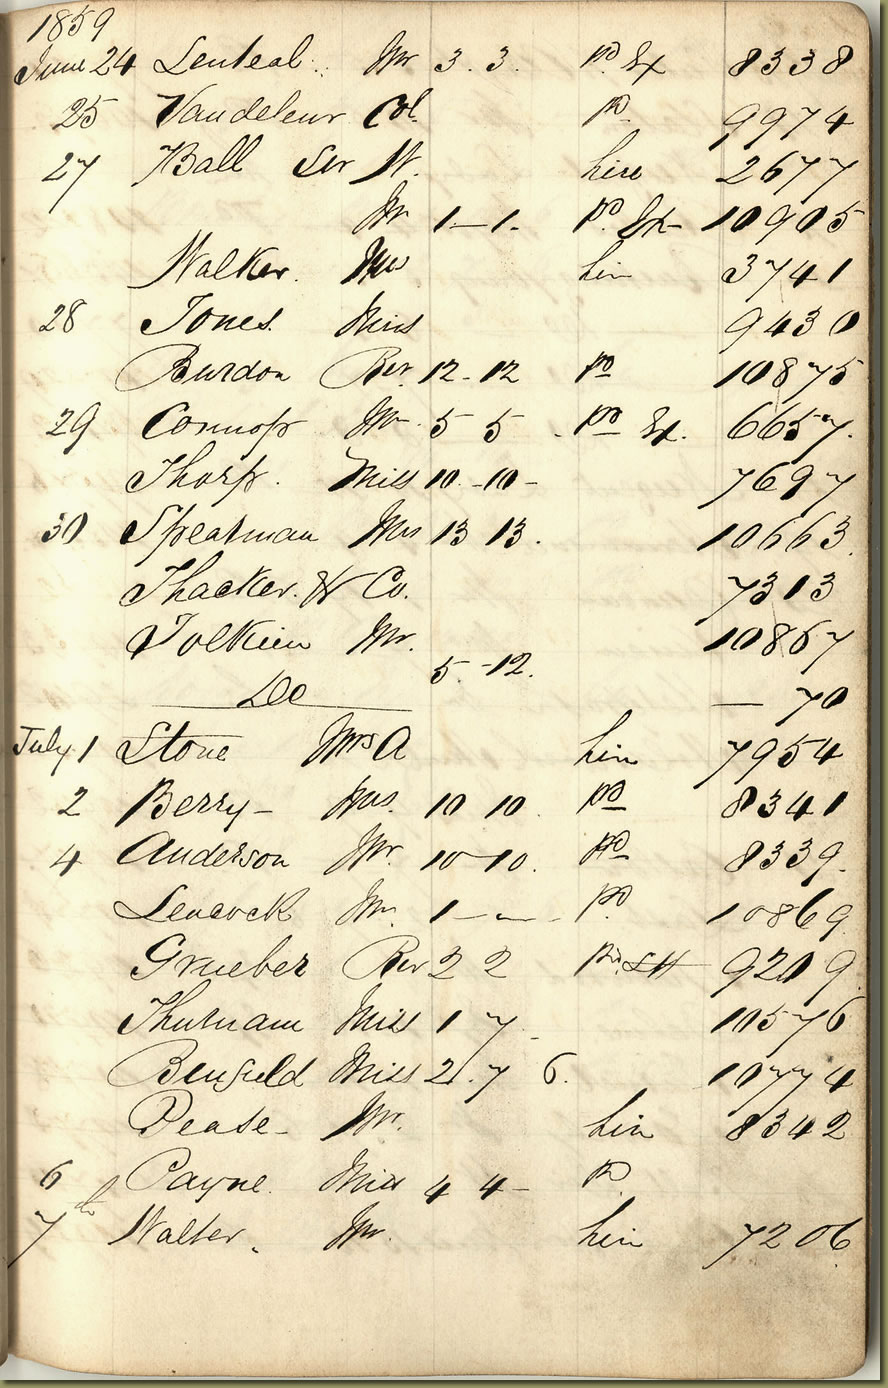 1859
June 24 Lenteal Mr 3. 3. pd Ex 8338
25 Vandeleur Col. pd 9974
27 Ball Sir W. hire 2677
Mr 1-1. pd. Ex 10905
Walker. Mrs hire 3741
28 Jones. Miss 9430
Burdon Rev. 12-12 pd 10875
29 Connop Mr 5 5 - pd Ex. 6657.
Thorp. Miss 10.-10- 7697
30 Spearman Mrs 13 13. 10663.
Thacker. & Co. 7313
Tolkien Mr. 10867
Do 5.-12. — 70
July 1 Stone Mrs A hire 7954
2 Berry- Mrs. 10 10. pd 8341
4 Anderson Mr. 10-10. pd 8339.
Leacock Mr. 1-- pd 10869
Grueber Rev 2 2 pd. 9209.
Thurnam Miss 1 7. 10576
Benfield Miss 2.7 6. 10774
Pease- Mr. hire 8342
6 Payne. Miss 4 4- pd
7th Walter. Mr. hire 7206